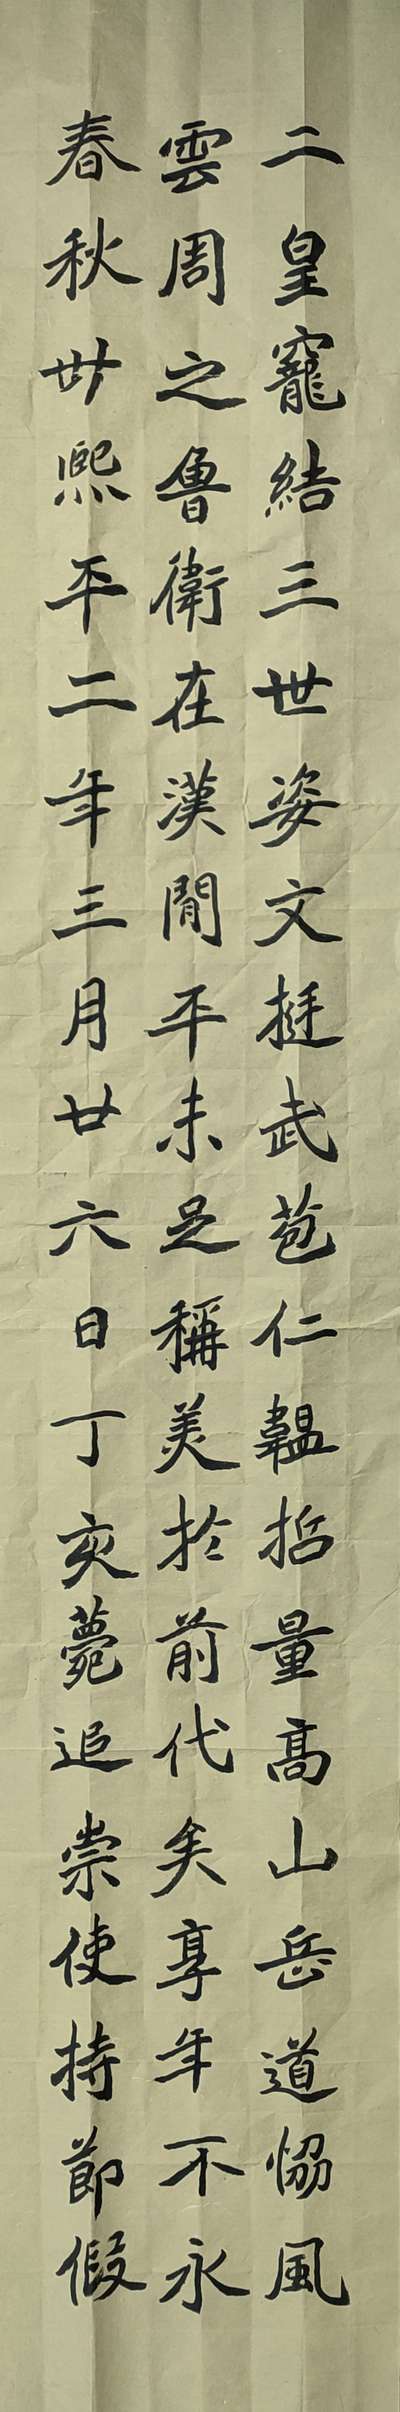 二皇寵結三世姿文挺武苞仁韞哲量高山岳道恊風
雲周之魯衛在漢閒平未足稱美於前代矣享年不永
春秋卅熙平二年三月廿六日丁亥薨追崇使持節假